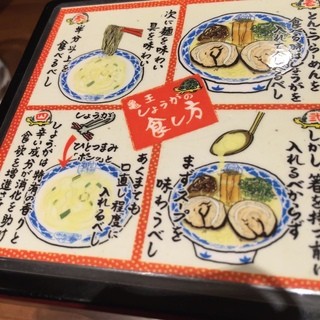 亀王
しょうがの
食し方
とんこつらーめんを
食る時しょうがを
入れて食べるべし
弐
しかし、箸を持つ前に
入れるべからず
まずスープを
味わうべし
次に麺を味わい
具を味わい
半分以上
食べるべし
四
しょうが
ひとつまみ
ポンッと
あくまでも
口直し程度に
入れるべし
しょうがは独特の香りと
辛い成分が消化を助け
食欲を増進させ